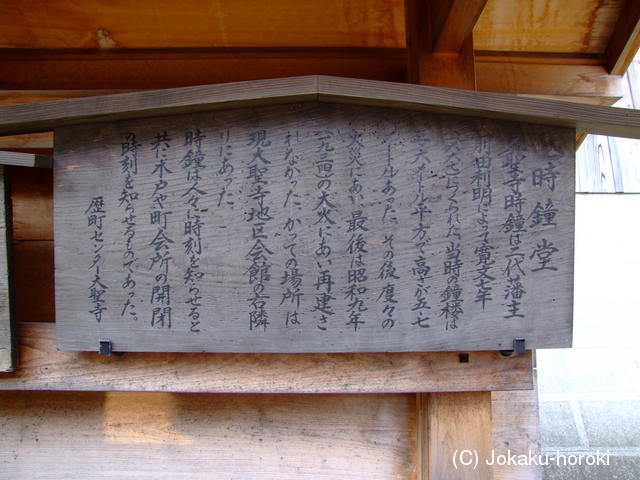 時鐘堂
大聖寺時鐘は二代藩主
前田利明によって寛文七年
(一六六七)つくられた。当時の鐘楼は
メートル平方で高さが五・七
メートルあった。その後度々の
火災にあい、最後は昭和九年
(一九三四)の大火にあい再建さ
れなかった。かつての場所は
現大聖寺地区会館の右隣
りにあった。
時鐘は人々に時刻を知らせると
共に木戸や町会所の開閉
の時刻を知らせるものであった。
歴町センター大聖寺
(C) Jokaku-horoki